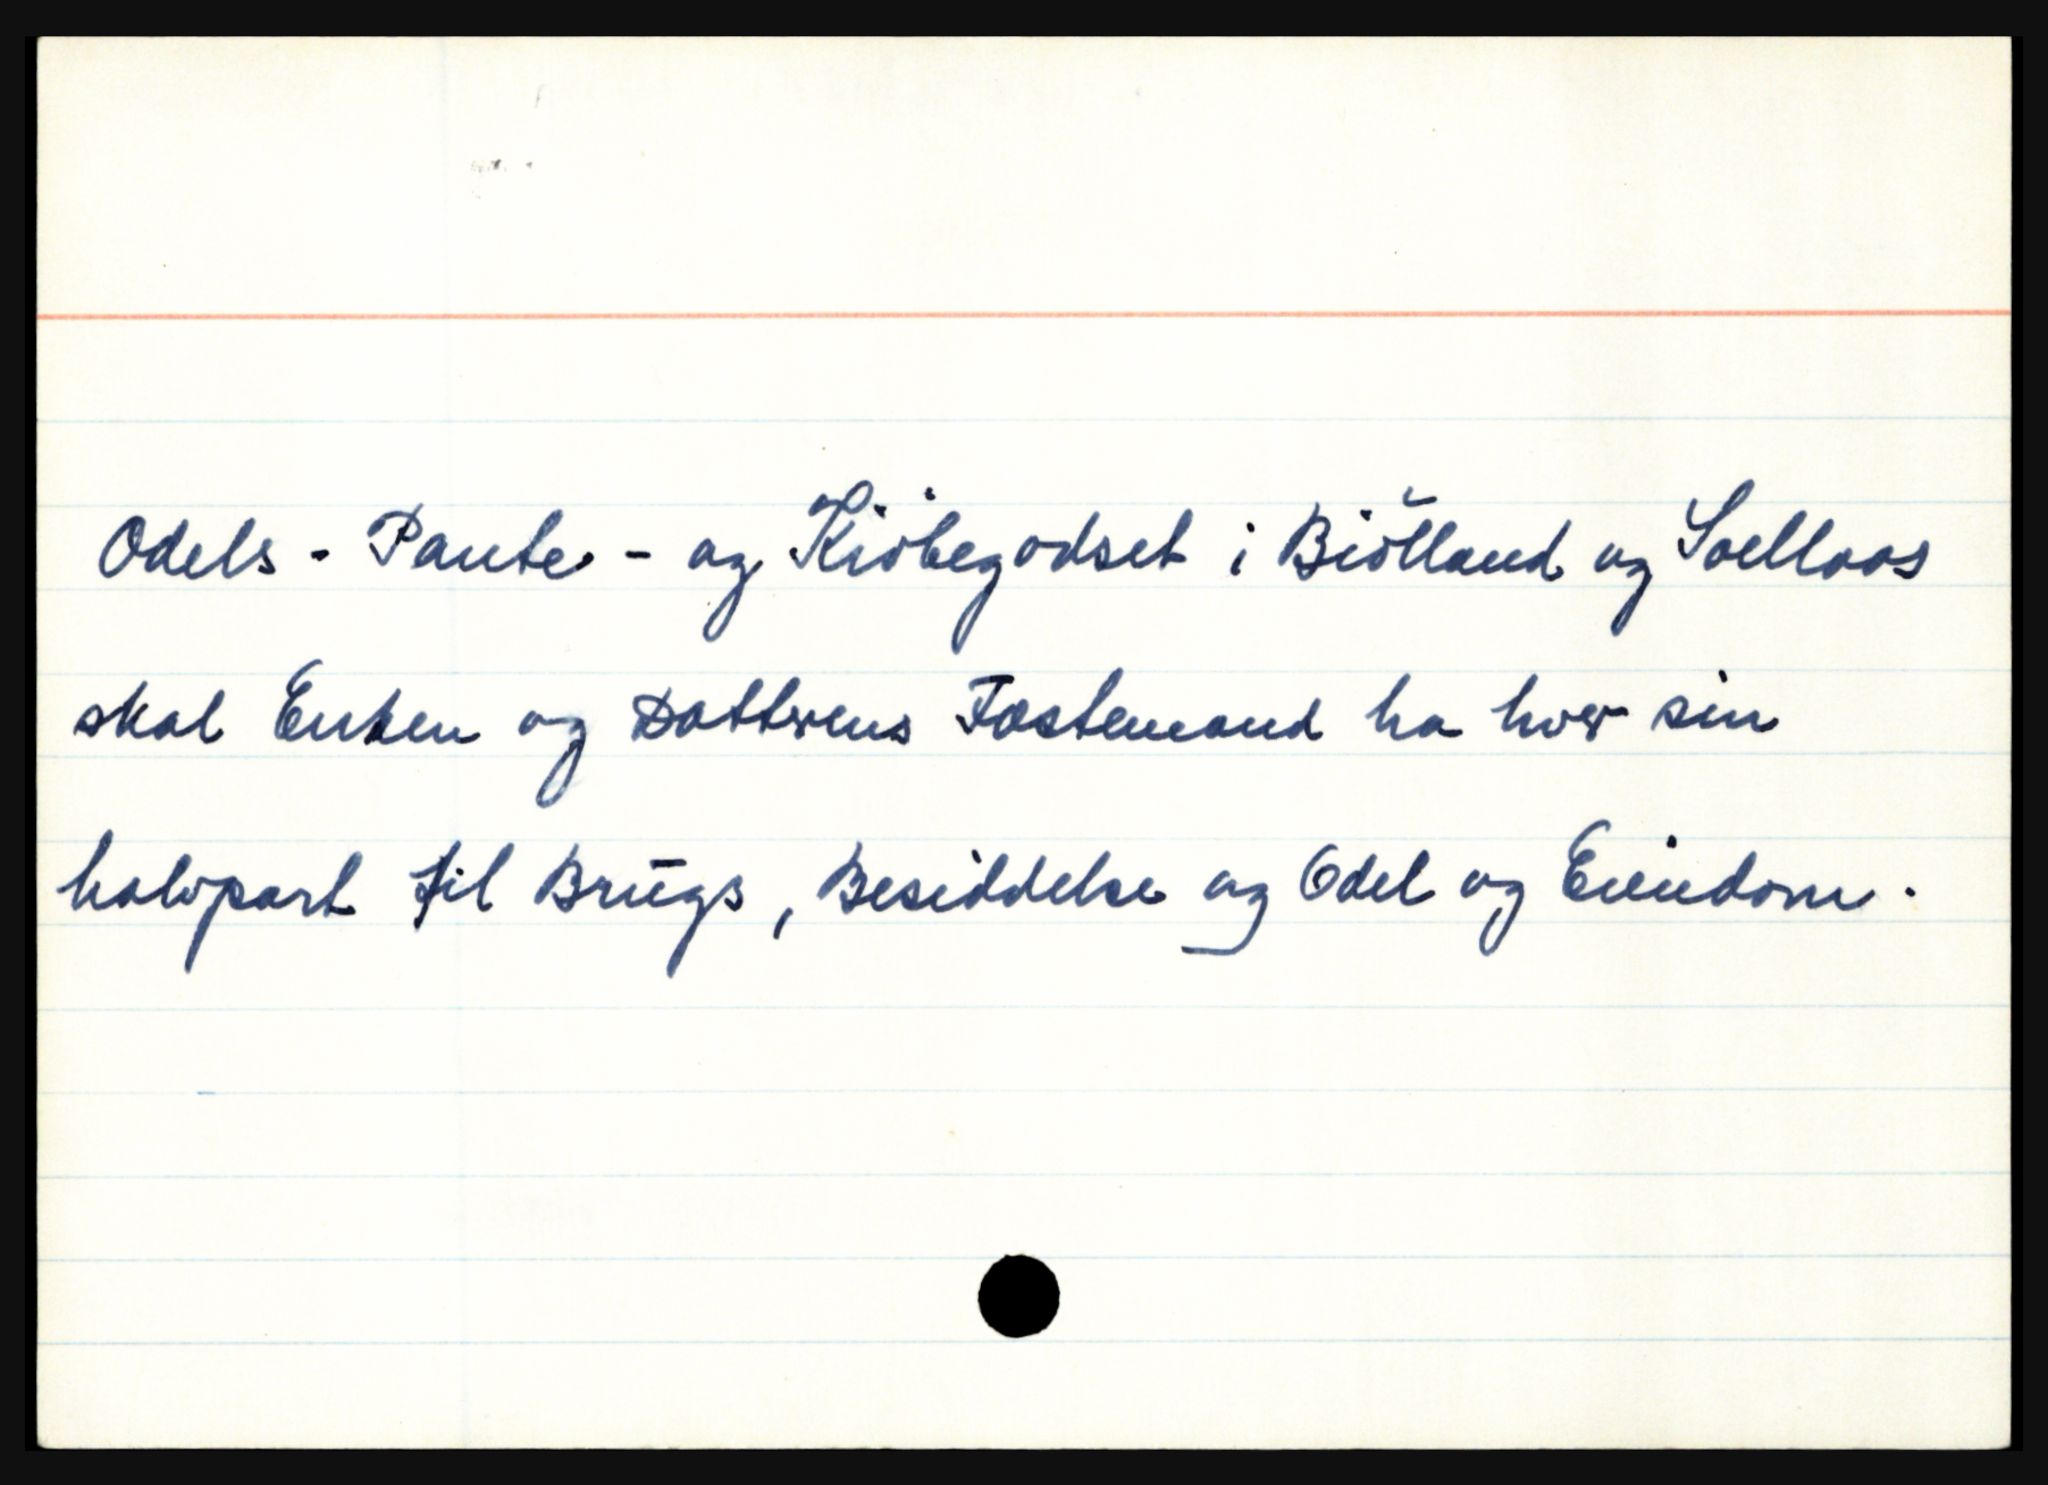 Odels - Pante - og Kiöbegodset i Biötland og Soelloos
skal Enken og Datterens Fæstemand ha hver sin
halvpart til Brugs, Besiddelse og Odel og Eiendom.